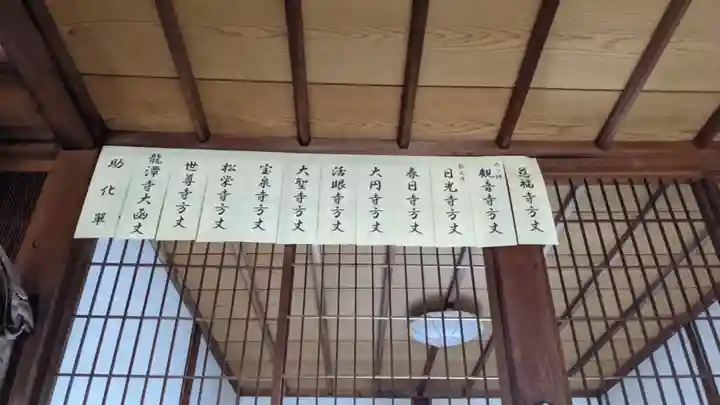 慈福寺方丈
観音寺方丈
日光寺方丈
春日寺方丈
大円寺方丈
活眼寺方丈
大聖寺方丈
宝泉寺方丈
松栄寺方丈
世尊寺方丈
龍潭寺大函丈
助化單